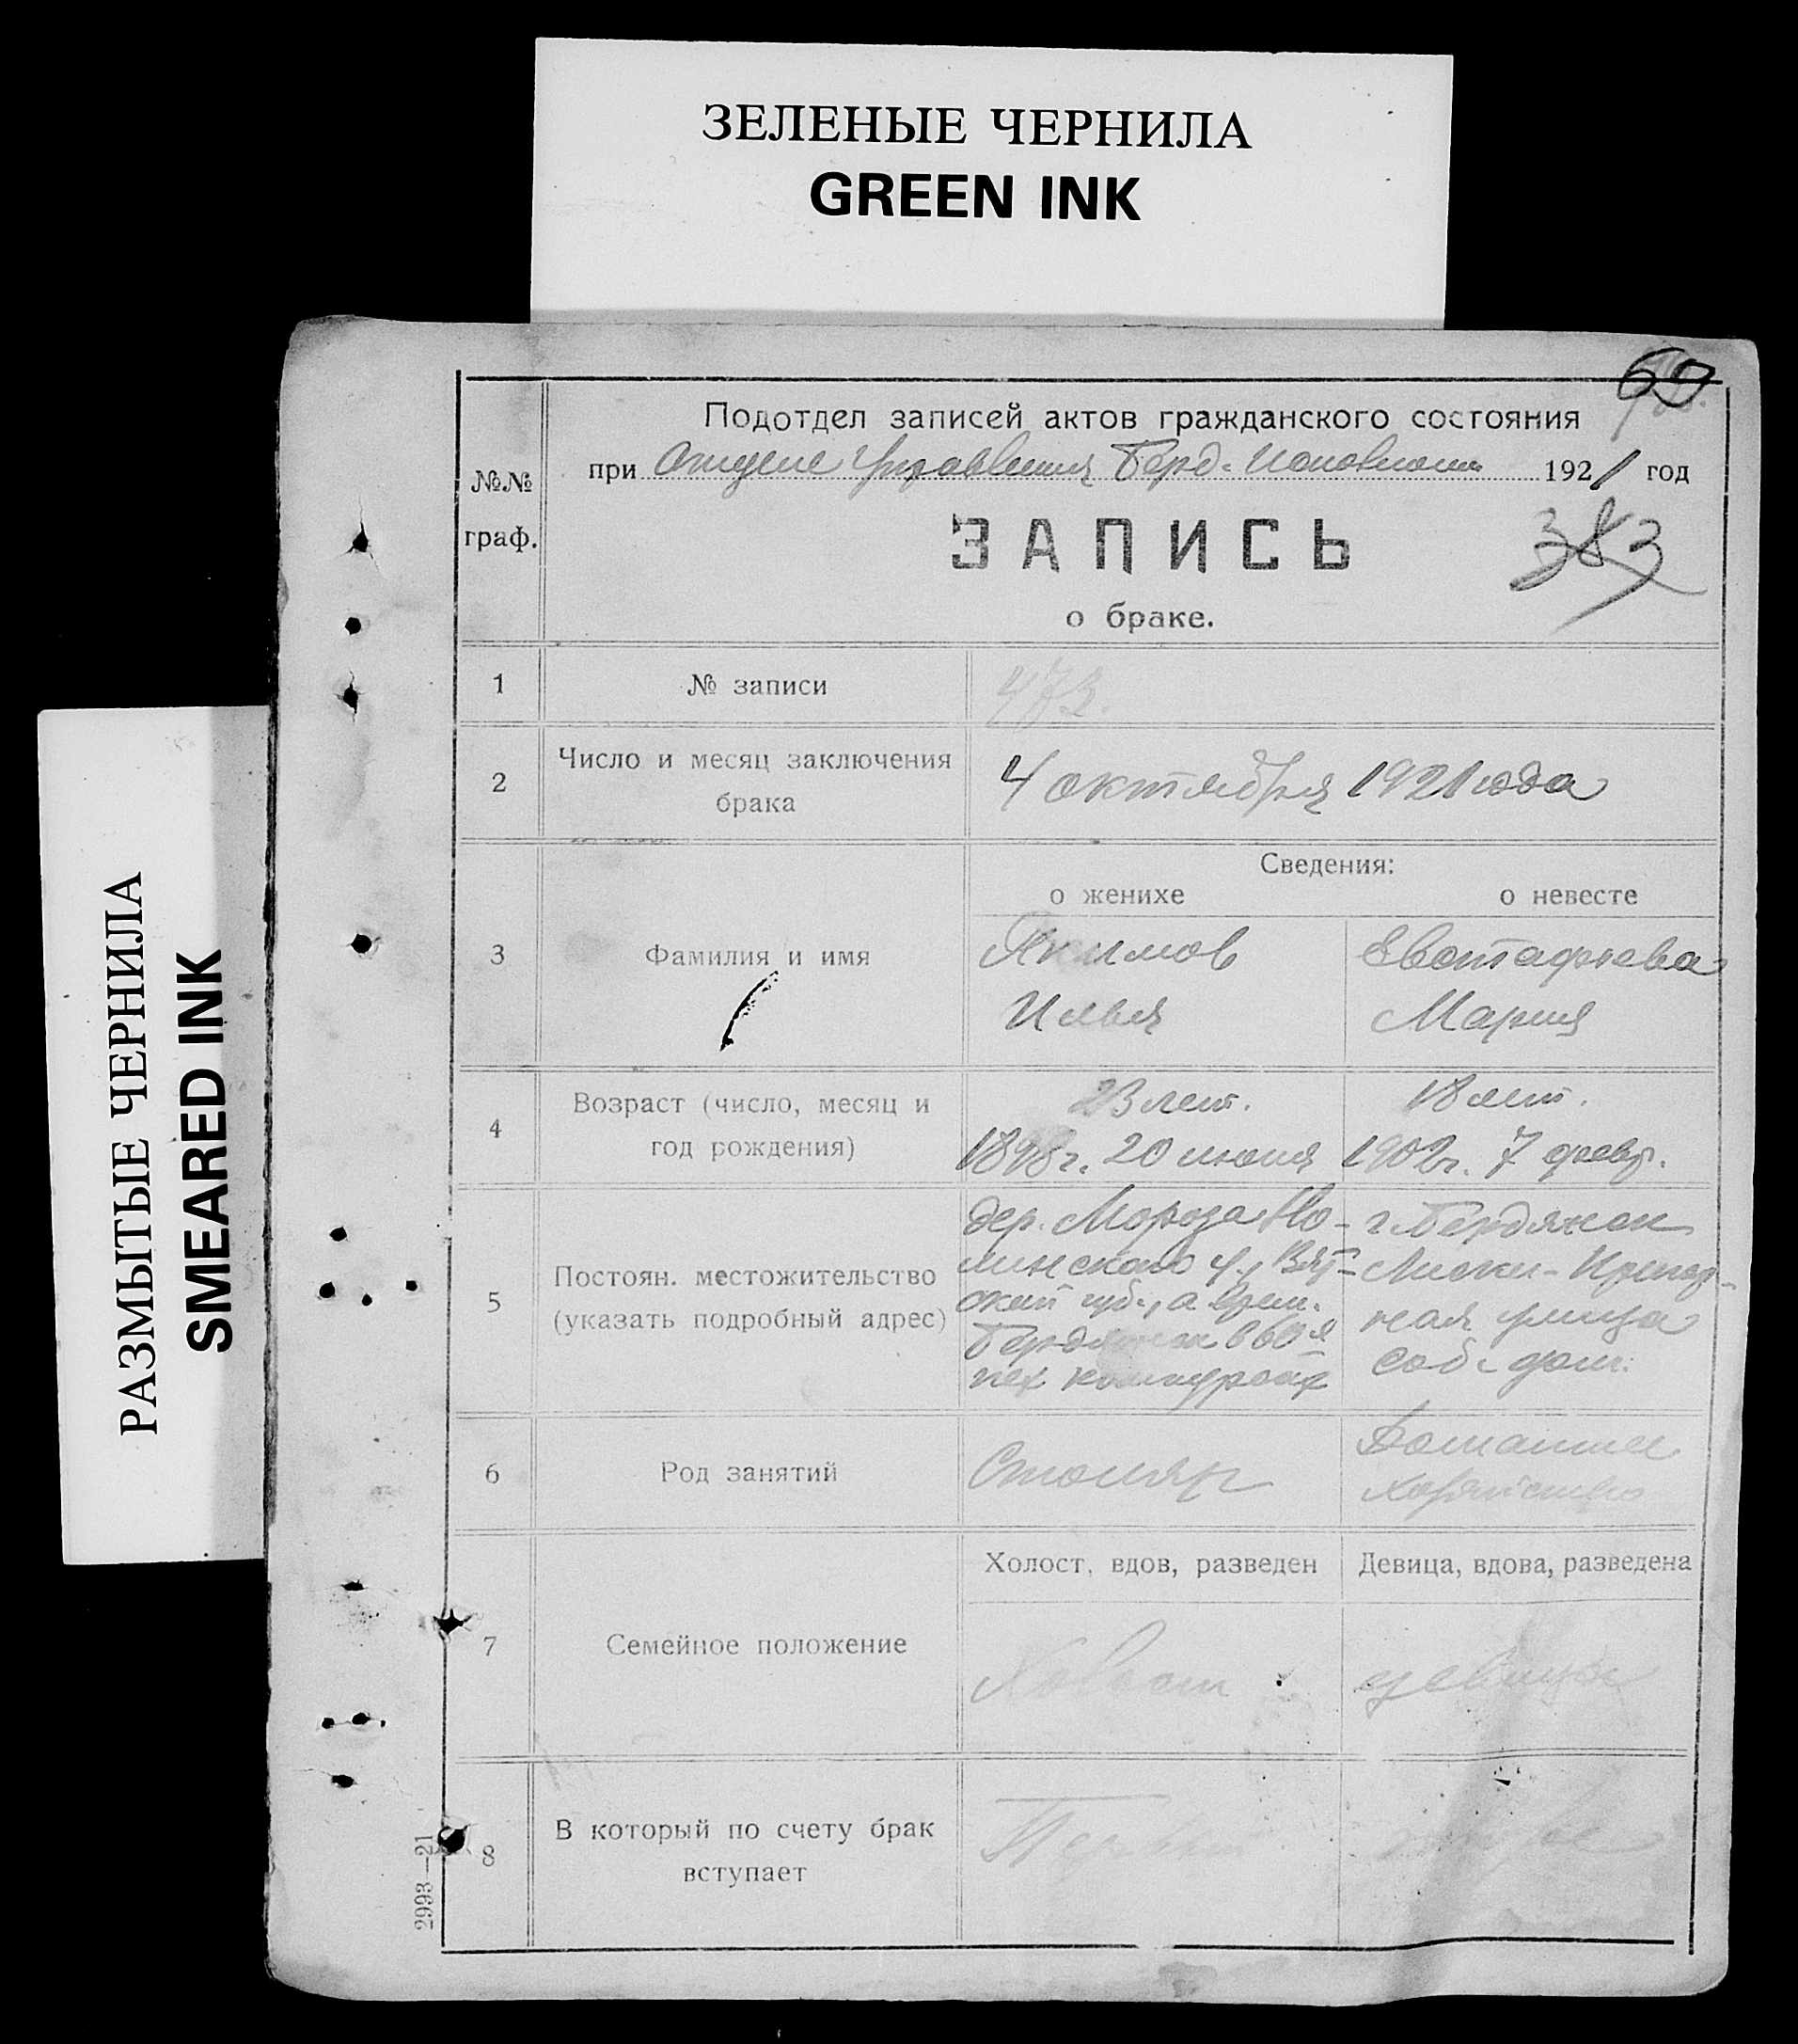 ЗЕЛЕНЫЕ ЧЕРНИЛА
GREEN INK
РАЗМЫТЫЕ ЧЕРНИЛА
SMEARED INK
60
Подотдел записей актов гражданского состояния
при Отделе Управления Берд. Исполкома 1921 год
№№
граф.
ЗАПИСЬ
383
о браке.
1 № записи 473.
2 Число и месяц заключения
брака
4 октября 1921 года
Сведения:
о женихе о невесте
3 Фамилия и имя
Якимов Евстафьева
Илья Мария
4 Возраст (число, месяц и
год рождения)
23 лет. 18 лет.
1898 г. 20 июня 1902 г. 7 февр.
5 Постоян. местожительство
(указать подробный адрес)
дер. Мороза Но-
линского у., Вят-
ской губ., а врем.
Бердянск в 60й
пех
г. Бердянск
Лиски-
ная улица
соб. дом.
6 Род занятий
Столяр
Домашнее
хозяйство
7 Семейное положение
Холост, вдов, разведен Девица, вдова, разведена
Холост девица
8 В который по счету брак
вступает
Первый
2993—21